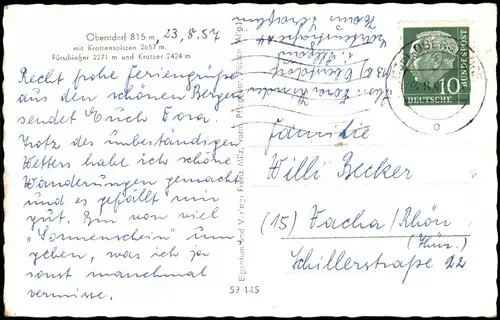 Oberstdorf 815 m, 23.8.57
mit Krottenspitzen 2657 m,
Fürschießer 2271 m und Kratzer 2424 m
Recht frohe Feriengrüße
aus den schönen Bergen
sendet Euch Dora.
Trotz des unbeständigen
Wetters habe ich schöne
Wanderungen gemacht
und es gefällt mir
gut. Bin von viel
"Sonnenschein" um-
geben, was ich ja
sonst manchmal
vermisse.
Eigentum und Verlag: Franz Milz, vorm.
59 145
(13b) Oberstdorf
OBERSTDORF
DEUTSCHE
BUNDESPOST
10
Familie
Willi Becker
(15) Vacha/Rhön
(Thür.)
Schillerstraße 22